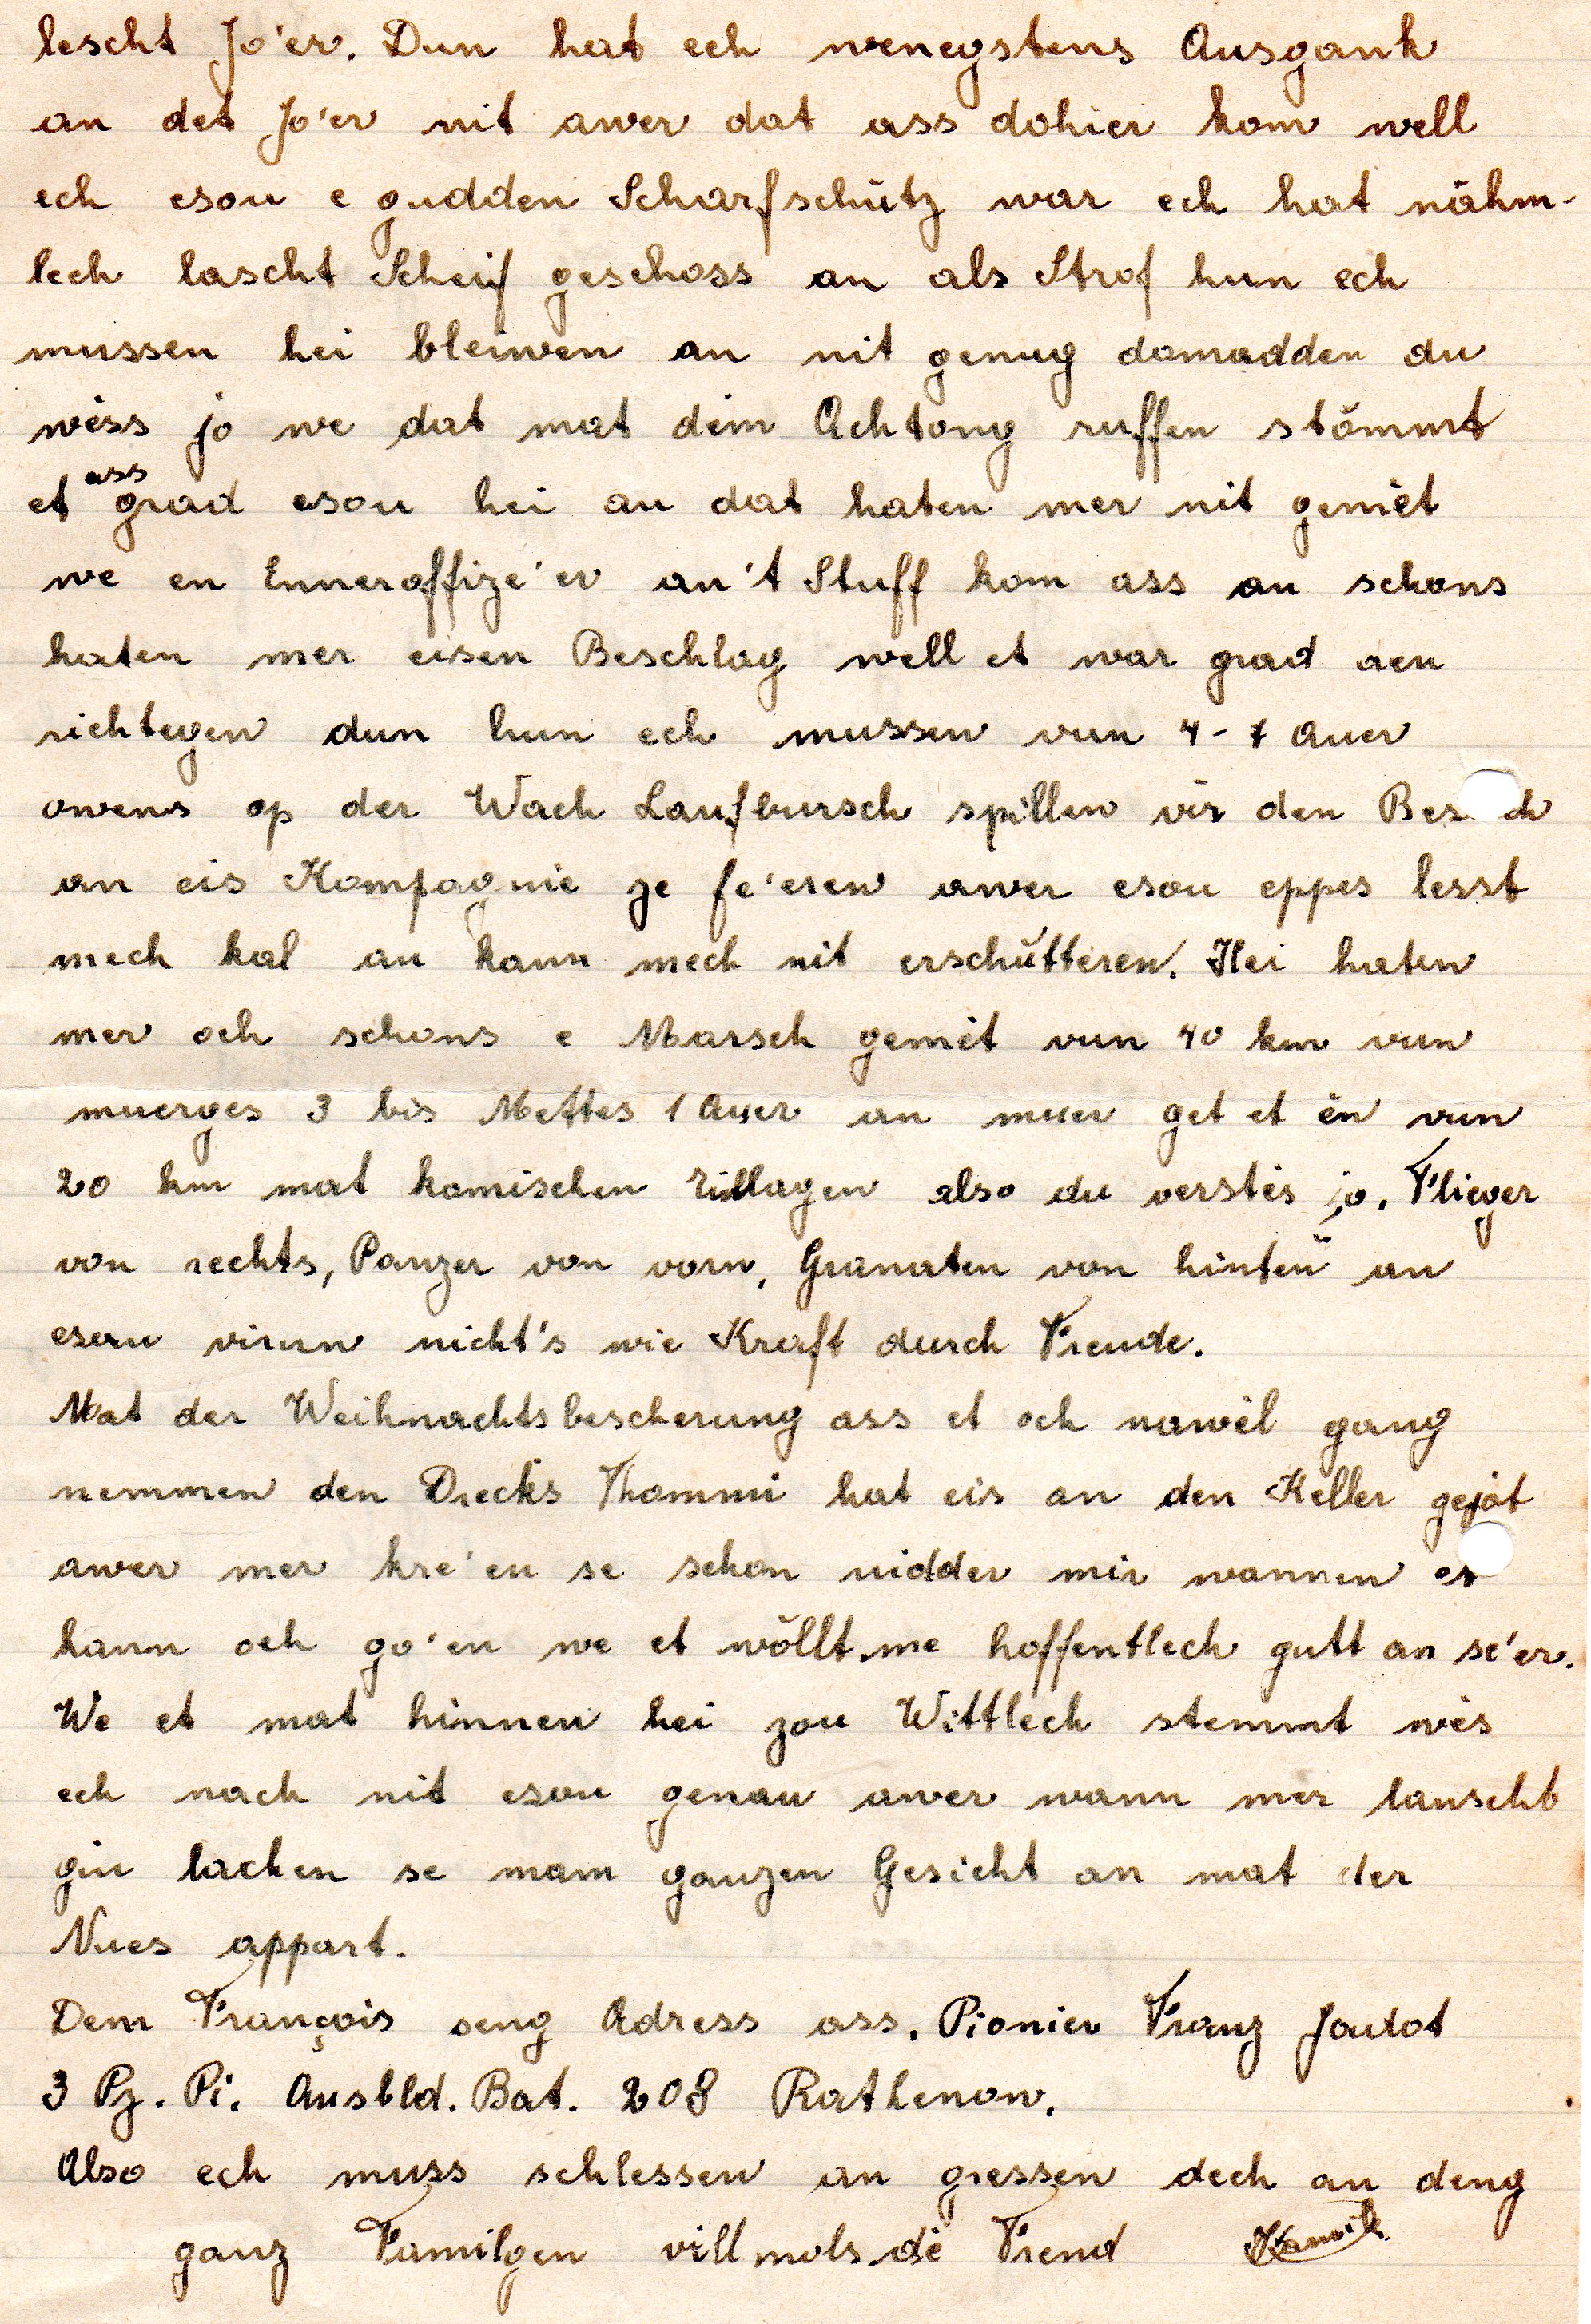 lescht Jo'er. Dun hat ech wenegstens Ausgank
an det Jo'er nit awer dat ass dohier kom well
ech esou e gudden Scharfschütz war ech hat nähm-
lech lascht Scheif geschoss an als Strof hun ech
mussen hei bleiwen an nit genug domadden du
wéss jo we dat mat dém Achtong ruffen stömmt
et ass grad esou hei an dat haten mer nit gemét
we en Enneroffize'er an't Stuff kom ass an schons
haten mer eisen Beschlag well et war grad aen
richtegen dun hun ech mussen vun 4-7 Auer
owens op der Wach Laufbursch spillen vir den Bes ch
an eis Kompagnie ze fe'eren awer esou eppes lesst
mech kal an kann mech nit erschütteren. Hei haten
mer och schons e Marsch gemét vun 40 km vun
muerges 3 bis Mettes 1 Auer an muer get et én vun
20 km mat komischen Eillagen also du verstés jo. Flieger
von rechts, Panzer von vorn, Granaten von hinten" an
esou virun nicht's wie Kraft durch Freude.
Mat der Weihnachtsbescherung ass et och nawél gang
nemmen den Drecks Thommi hat eis an den Keller gejot
awer mer kre'en se schon nidder mir wannen
kann och go'en we et wöllt.me hoffentlech gutt an se'er.
We et mat hinnen hei zou Wittlech stemmt wés
ech nach nit esou genau awer wann mer lauscht
gin lachen se mam ganzen Gesicht an mat der
Nues appart.
Dem François seng Adress ass. Pionier Franz Joudot
3 Pz. Pi. Ausbld. Bat. 208 Rathenow.
Also ech muss schlessen an gressen dech an deng
ganz Familgen villmols dé Frend